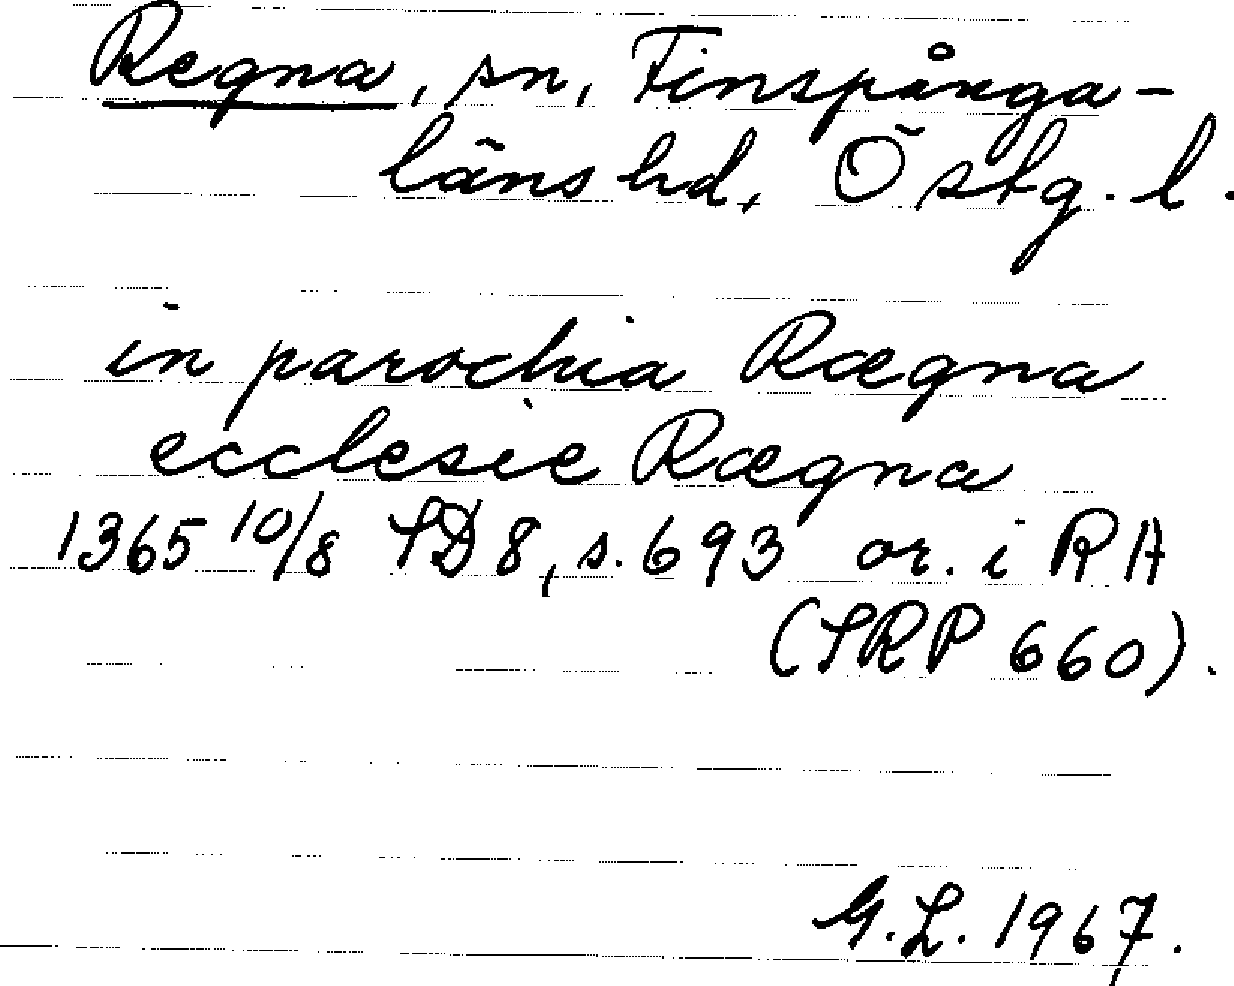 Regna, sn, Finspånga-
läns hd, Östg. l.
in parochia Rægna
ecclesie Rægna
1365 10/8 SD 8, s. 693 or. i RA
(SRP 660).
G.L. 1967.